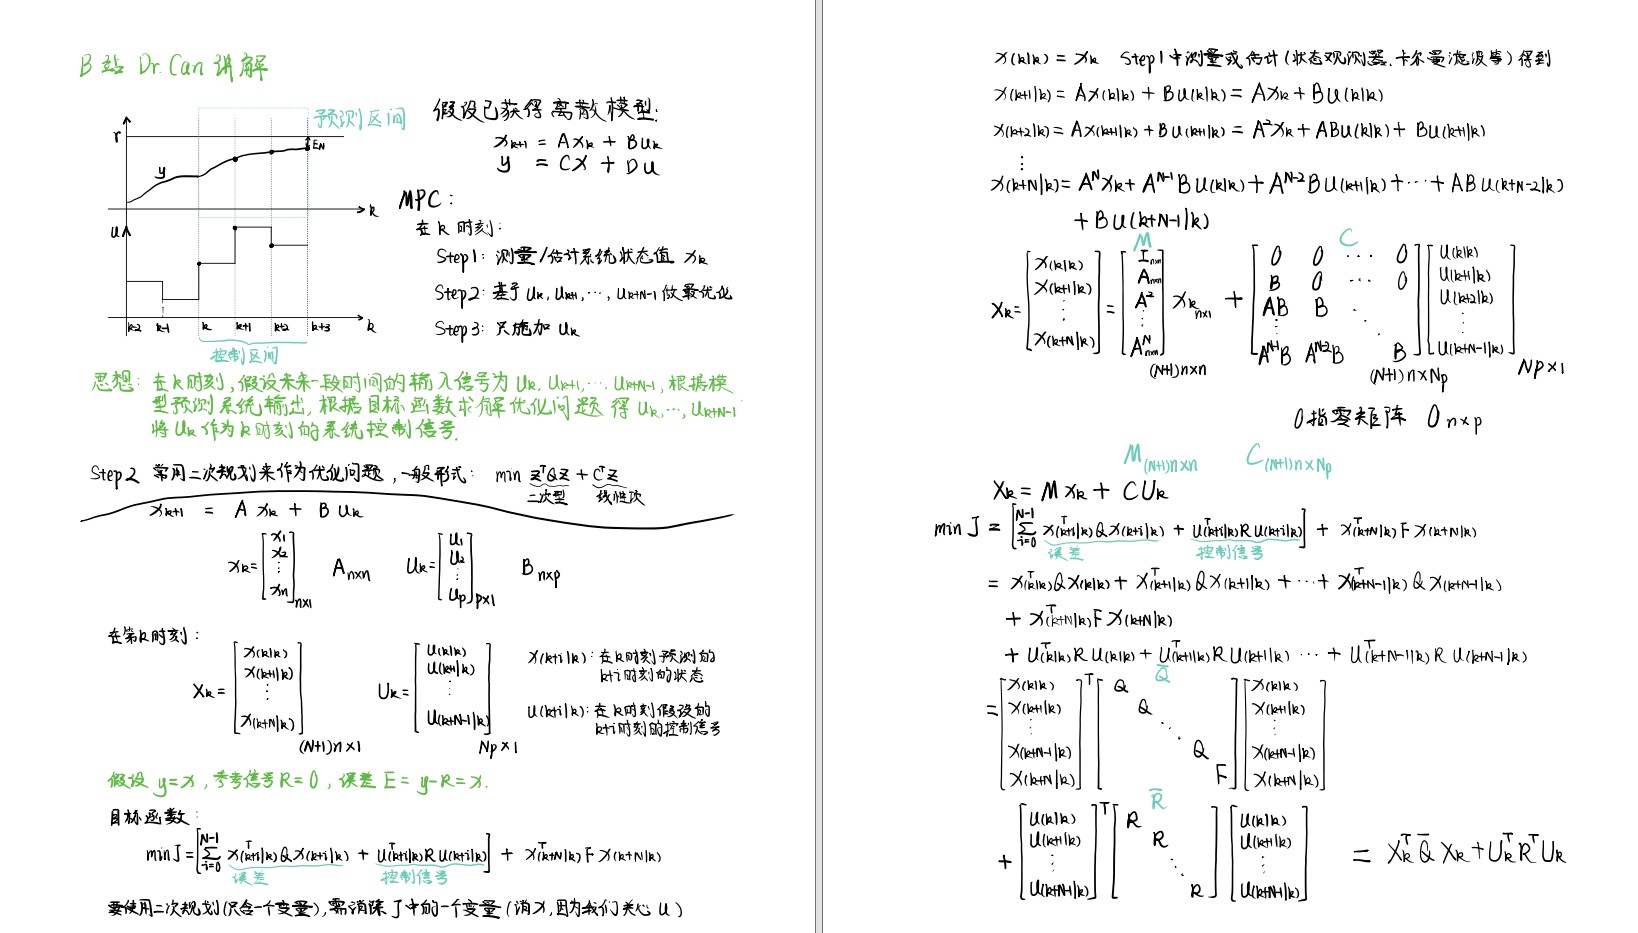 B站 Dr. Can 讲解
预测区间
r
y
E_N
k
u
k-2 k-1 k k+1 k+2 k+3 k
控制区间
假设已获得离散模型:
x_{k+1} = Ax_k + Bu_k
y = Cx + Du
MPC:
在k时刻:
Step1: 测量/估计系统状态值 x_k
Step2: 基于 u_k, u_{k+1}, ..., u_{k+N-1} 做最优化
Step3: 只施加 u_k
思想: 在k时刻, 假设未来一段时间的输入信号为 u_k, u_{k+1}, ... u_{k+N-1}, 根据模
型预测系统输出, 根据目标函数求解优化问题 得 u_k, ..., u_{k+N-1}
将 u_k 作为k时刻的系统控制信号.
Step2 常用二次规划来作为优化问题, 一般形式: min z^TQz + C^Tz
二次型 线性项
x_{k+1} = A x_k + B u_k
x_k = [x_1 x_2 ⋮ x_n]_{n×1} A_{n×n} u_k = [u_1 u_2 ⋮ u_p]_{p×1} B_{n×p}
在第k时刻:
X_k = [x(k|k) x(k+1|k) ⋮ x(k+N|k)] (N+1)n×1
U_k = [u(k|k) u(k+1|k) ⋮ u(k+N-1|k)] Np×1
x(k+i|k): 在k时刻预测的
k+i时刻的状态
u(k+i|k): 在k时刻假设的
k+i时刻的控制信号
假设 y=x, 参考信号R=0, 误差 E=y-R=x.
目标函数:
min J = [∑_{i=0}^{N-1} x^T(k+i|k)Qx(k+i|k) + u^T(k+i|k)Ru(k+i|k)] + x^T(k+N|k)Fx(k+N|k)
误差 控制信号
要使用二次规划(只含一个变量), 需消除J中的一个变量(消x, 因为我们关心u)
x(k|k) = x_k Step1中测量或估计(状态观测器、卡尔曼滤波等)得到
x(k+1|k) = Ax(k|k) + Bu(k|k) = Ax_k + Bu(k|k)
x(k+2|k) = Ax(k+1|k) + Bu(k+1|k) = A^2x_k + ABu(k|k) + Bu(k+1|k)
⋮
x(k+N|k) = A^Nx_k + A^{N-1}Bu(k|k) + A^{N-2}Bu(k+1|k) + ⋯ + ABu(k+N-2|k)
+ Bu(k+N-1|k)
M C
X_k = [x(k|k) x(k+1|k) ⋮ x(k+N|k)] = [I_{n×n} A_{n×n} A^2 ⋮ A^N_{n×n}] x_k n×1 + [0 0 ⋯ 0; B 0 ⋯ 0; AB B ⋱; ⋮; A^{N-1}B A^{N-2}B B] [u(k|k) u(k+1|k) u(k+2|k) ⋮ u(k+N-1|k)]
(N+1)n×n (N+1)n×Np Np×1
0指零矩阵 0_{n×p}
M_{(N+1)n×n} C_{(N+1)n×Np}
X_k = Mx_k + CU_k
min J = [∑_{i=0}^{N-1} x^T(k+i|k)Qx(k+i|k) + u^T(k+i|k)Ru(k+i|k)] + x^T(k+N|k)Fx(k+N|k)
误差 控制信号
= x^T(k|k)Qx(k|k) + x^T(k+1|k)Qx(k+1|k) + ⋯ + x^T(k+N-1|k)Qx(k+N-1|k)
+ x^T(k+N|k)Fx(k+N|k)
+ u^T(k|k)Ru(k|k) + u^T(k+1|k)Ru(k+1|k) ⋯ + u^T(k+N-1|k)Ru(k+N-1|k)
Q̄
= [x(k|k) x(k+1|k) ⋮ x(k+N-1|k) x(k+N|k)]^T [Q Q ⋱ Q F] [x(k|k) x(k+1|k) ⋮ x(k+N-1|k) x(k+N|k)]
R̄
+ [u(k|k) u(k+1|k) ⋮ u(k+N-1|k)]^T [R R ⋱ R] [u(k|k) u(k+1|k) ⋮ u(k+N-1|k)] = X_k^T Q̄ X_k + U_k^T R^T U_k